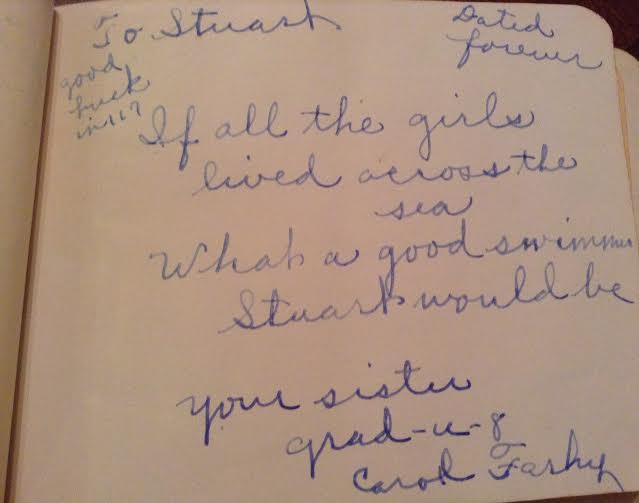 To Stuart
Dated
forever
good
luck
in 117
If all the girls
lived across the
sea
What a good swimmer
Stuart would be
your sister
grad-u-8
Carol